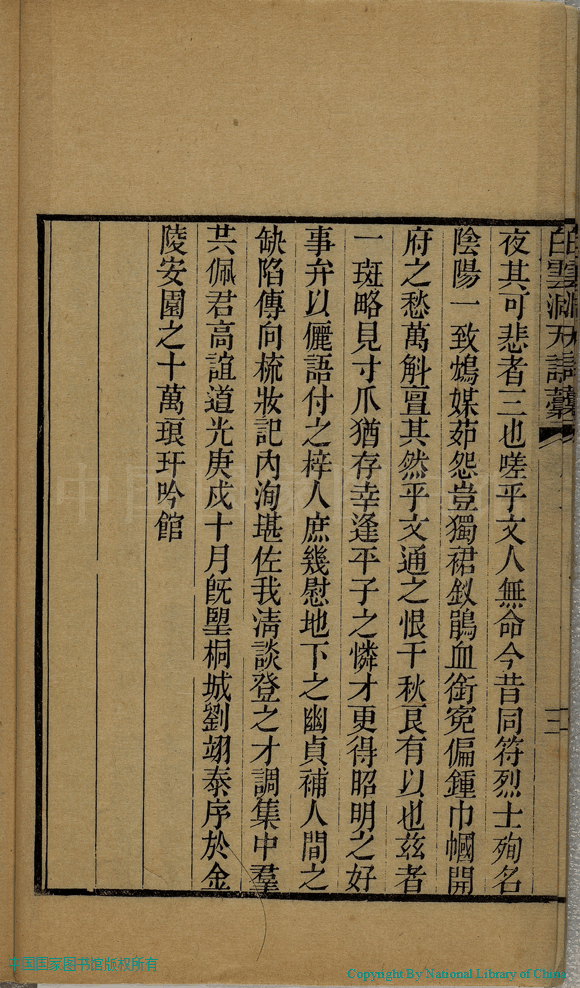 白雲洞天詩藁
三
夜其可悲者三也嗟乎文人無命今昔同符烈士殉名
陰陽一致鴆媒茹怨豈獨裙釵鵑血銜寃偏鍾巾幗開
府之愁萬斛亶其然乎文通之恨千秋良有以也玆者
一斑略見寸爪猶存幸逢平子之憐才更得昭明之好
事弁以儷語付之梓人庶幾慰地下之幽貞補人間之
缺陷傳向梳妝記內洵堪佐我清談登之才調集中羣
共佩君高誼道光庚戌十月旣朢桐城劉翊泰序於金
陵安園之十萬琅玕吟館
中国国家图书馆版权所有
Copyright By National Library of China